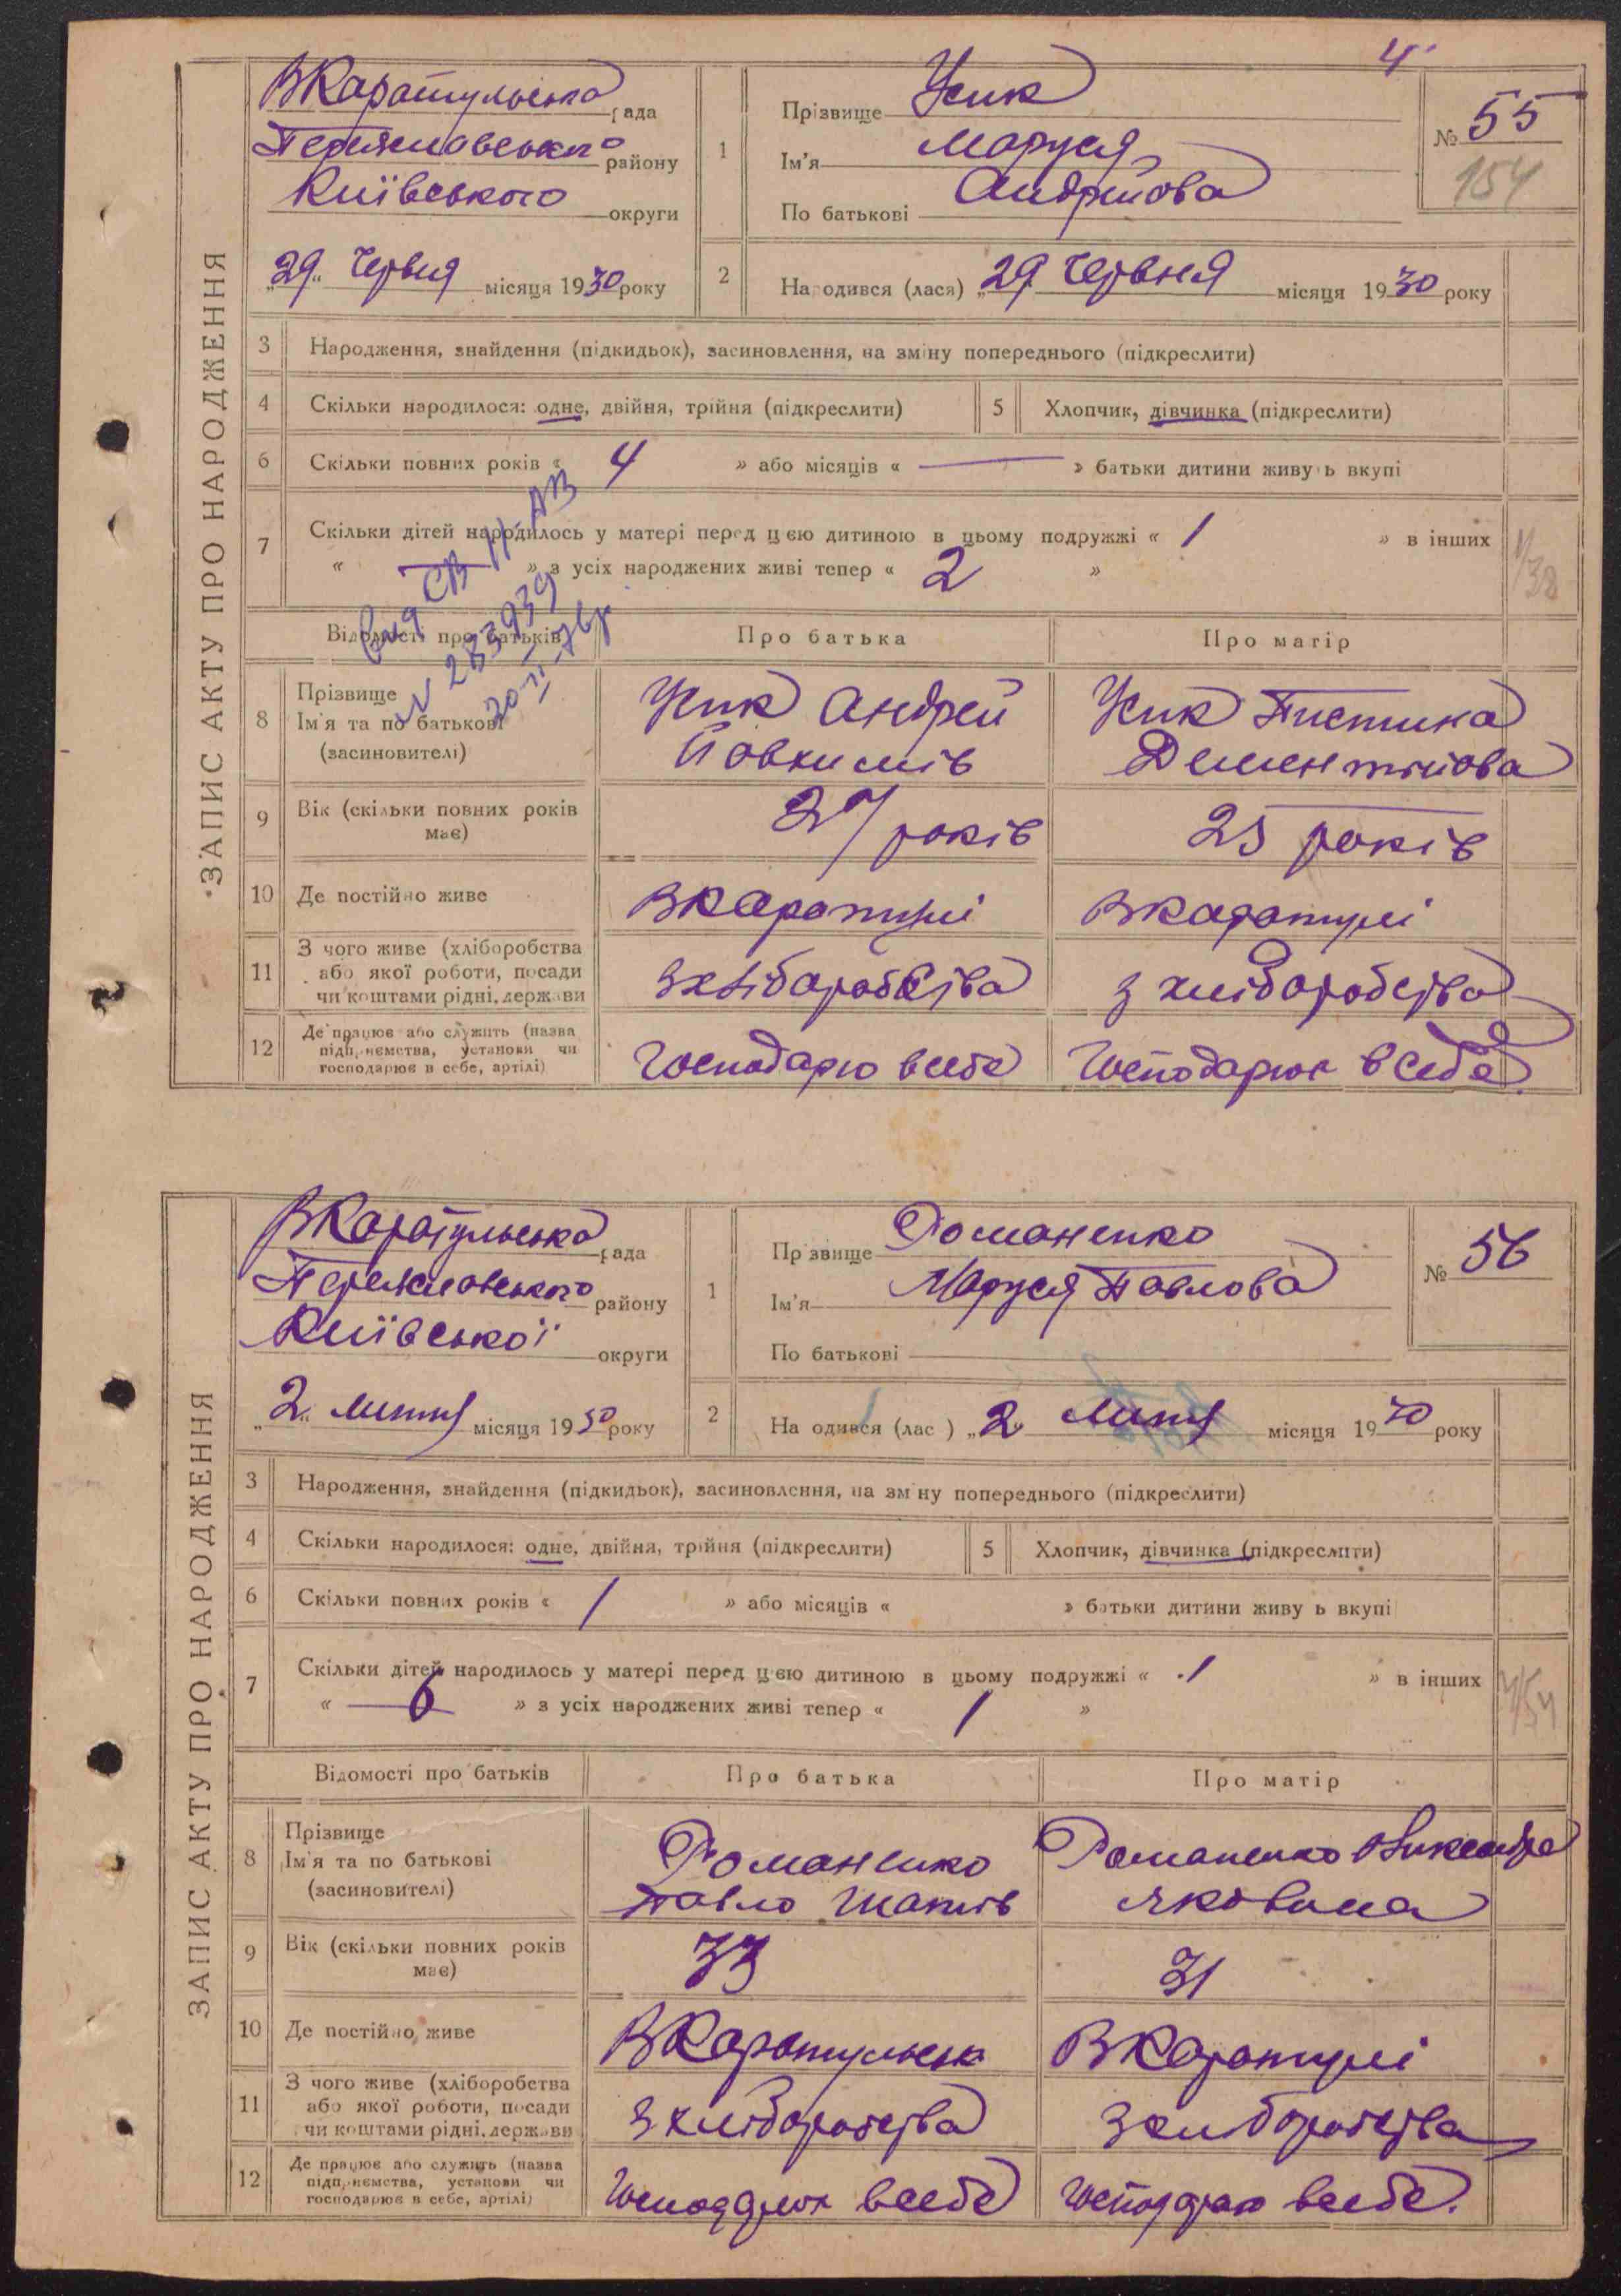 4
ЗАПИС АКТУ ПРО НАРОДЖЕННЯ
ВКаратульська рада
Переяславського району
Київського округи
29 Червня місяця 1930 року
1
Прізвище Усик
Ім'я Маруся
По батькові Андрійова
№ 55
154
2
Народився (лася) „29 Червня місяця 1930 року
3 Народження, знайдення (підкидьок), засиновлення, на зміну попереднього (підкреслити)
4 Скільки народилося: одне, двійня, трійня (підкреслити) 5 Хлопчик, дівчинка (підкреслити)
6 Скільки повних років « 4 » або місяців « — » батьки дитини живуть вкупі
7 Скільки дітей народилось у матері перед цією дитиною в цьому подружжі « 1 » в інших
« — » з усіх народжених живі тепер « 2 »
1/38
Відомості про батьків Про батька Про матір
8 Прізвище
Ім'я та по батькові
(засиновителі)
Усик Андрей
Йовхимів
Усик Пистина
Дементійова
9 Вік (скільки повних років має) 27 років 25 років
10 Де постійно живе ВКаратулі ВКаратулі
11 З чого живе (хліборобства
або якої роботи, посади
чи коштами рідні, держави
З хліборобства з хліборобства
12 Де працює або служить (назва
підприємства, установи чи
господарює в себе, артілі)
Господарю всебе Господарює в себе.
ЗАПИС АКТУ ПРО НАРОДЖЕННЯ
ВКаратульська рада
Переяславського району
Київської округи
„2“ лютня місяця 1930 року
1
Прізвище Романенко
Ім'я Маруся Павлова
По батькові
№ 56
2
Народився (лас ) „2 лютня місяця 1930 року
3 Народження, знайдення (підкидьок), засиновлення, на зміну попереднього (підкреслити)
4 Скільки народилося: одне, двійня, трійня (підкреслити) 5 Хлопчик, дівчинка (підкреслити)
6 Скільки повних років « 1 » або місяців « » батьки дитини живуть вкупі
7 Скільки дітей народилось у матері перед цією дитиною в цьому подружжі « 1 » в інших
« 6 » з усіх народжених живі тепер « 1 »
Відомості про батьків Про батька Про матір
8 Прізвище
Ім'я та по батькові
(засиновителі)
Романенко
Павло
Романенко
Яковина
9 Вік (скільки повних років має) 33 31
10 Де постійно живе ВКаратульськ ВКаратулі
11 З чого живе (хліборобства
або якої роботи, посади
чи коштами рідні, держави
З хліборобства З хліборобства
12 Де працює або служить (назва
підприємства, установи чи
господарює в себе, артілі)
всебе всебе.